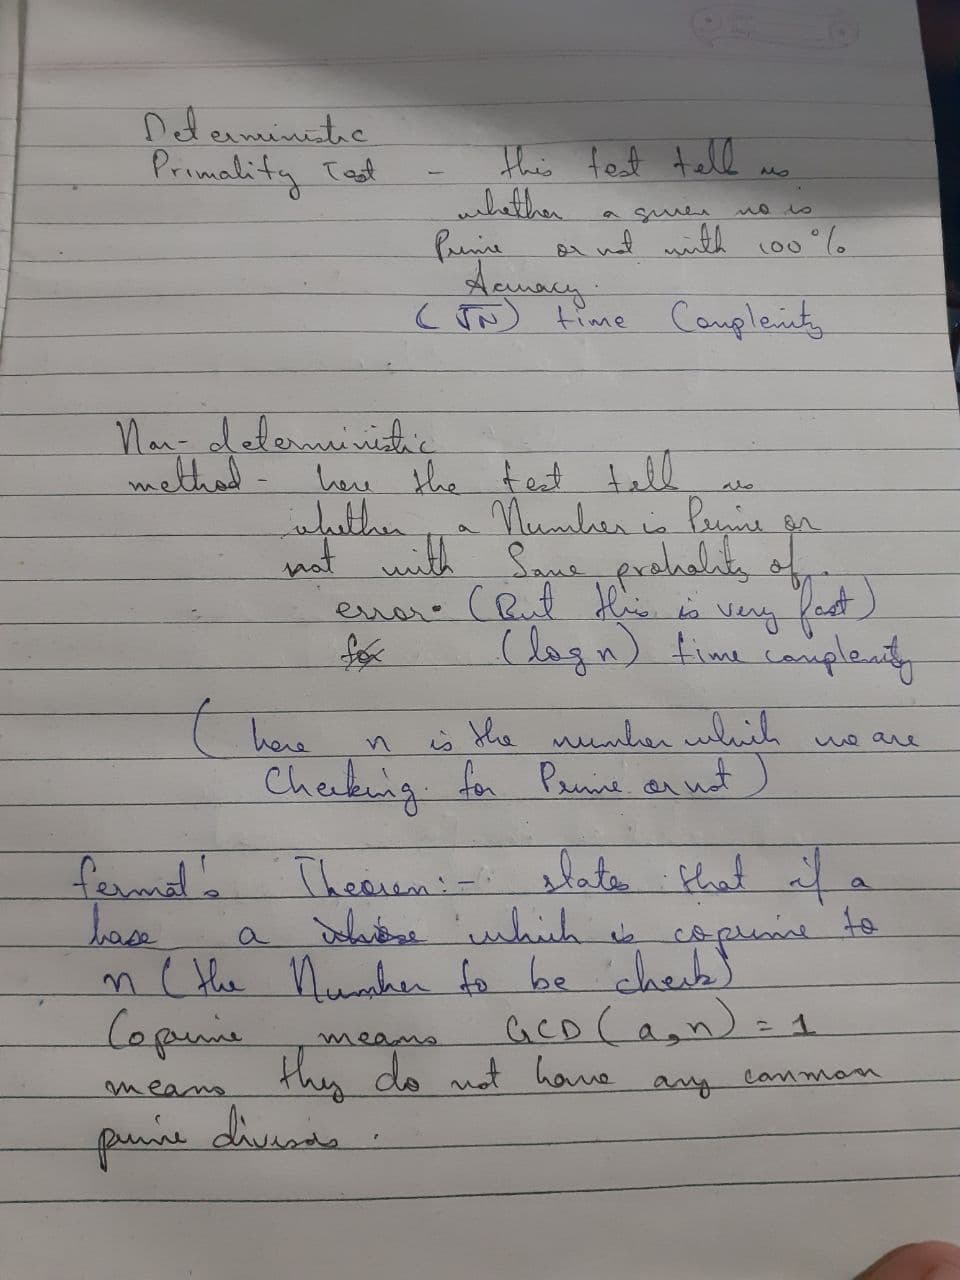 Deterministic
Primality Test - this test tell us
whether a given no is
Prime or not with 100%
Accuracy.
(√N) time Complexity
Non-deterministic
method - here the test tell us
whether a Number is Prime or
not with Some probality of
error. (But this is very fast)
for (log n) time complexity
( here n is the number which we are
Checking for Prime or not )
fermat's Theorem :- states that if a
base a whose which is coprime to
n ( the Number to be check)
Coprime means GCD ( a, n ) = 1
means they do not have any common
prime divisors .